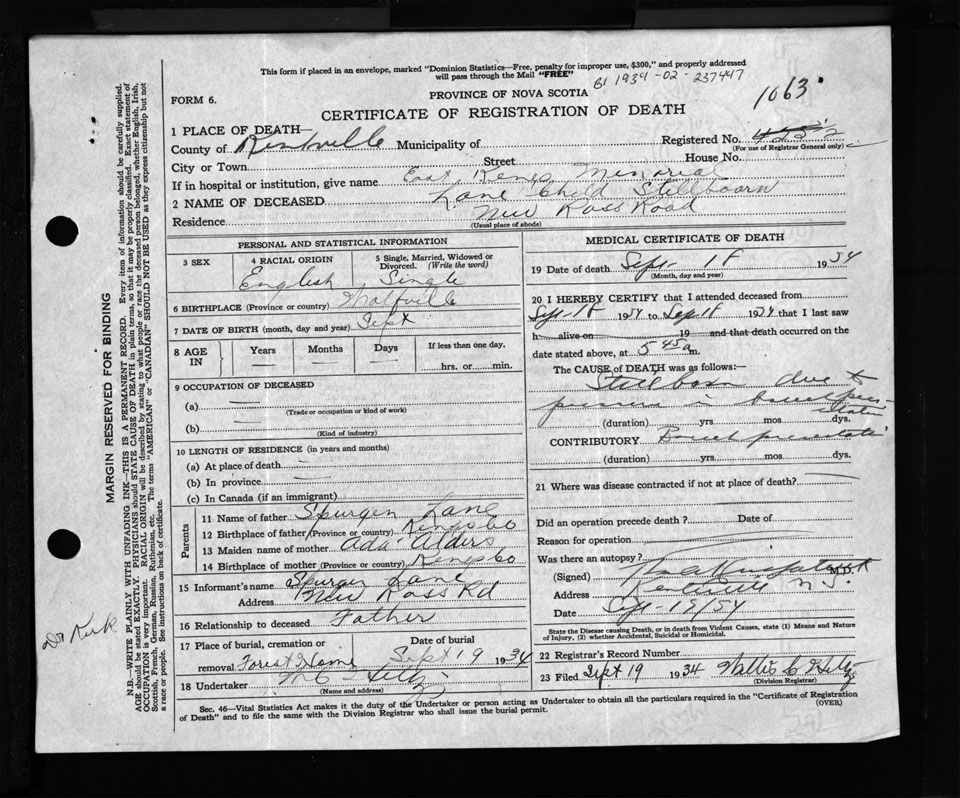 This form if placed in an envelope, marked "Dominion Statistics—Free, penalty for improper use, $300," and properly addressed
will pass through the Mail "FREE"
B1 1934-02-237447
PROVINCE OF NOVA SCOTIA
1063
FORM 6.
CERTIFICATE OF REGISTRATION OF DEATH
1 PLACE OF DEATH—
County of Kentville Municipality of Registered No.
(For use of Registrar General only)
City or Town Street House No.
If in hospital or institution, give name East Kings Memorial
2 NAME OF DECEASED Lane Child Stillboarn
Residence New Ross Road
(Usual place of abode)
PERSONAL AND STATISTICAL INFORMATION
3 SEX
4 RACIAL ORIGIN
English
5 Single, Married, Widowed or Divorced. (Write the word)
Single
6 BIRTHPLACE (Province or country) Wolfville
7 DATE OF BIRTH (month, day and year) Sept
8 AGE IN Years Months Days If less than one day,
hrs. or min.
9 OCCUPATION OF DECEASED
(a) —
(Trade or occupation or kind of work)
(b) —
(Kind of industry)
10 LENGTH OF RESIDENCE (in years and months)
(a) At place of death —
(b) In province —
(c) In Canada (if an immigrant)
Parents
11 Name of father Spurgen Lane
12 Birthplace of father (Province or country) Kingsbo
13 Maiden name of mother Ada Alders
14 Birthplace of mother (Province or country) Kingsbo
15 Informant's name Spurgen Lane
Address New Ross Rd
16 Relationship to deceased Father
17 Place of burial, cremation or Date of burial
removal Forest Home Sept 19 1934
18 Undertaker
(Name and address)
MEDICAL CERTIFICATE OF DEATH
19 Date of death Sept 18 1934
(Month, day and year)
20 I HEREBY CERTIFY that I attended deceased from
Sept-18 1934 to Sept 18 1934 that I last saw
h alive on 19 and that death occurred on
date stated above, at 5 45a m.
The CAUSE OF DEATH was as follows:—
Stillborn due to
in breech
(duration) yrs mos dys.
CONTRIBUTORY Breech
(duration) yrs mos dys.
21 Where was disease contracted if not at place of death?
Did an operation precede death? Date of
Reason for operation
Was there an autopsy?
(Signed) M.D.
Address Kentville N.S.
Date Sept-19/34
State the Disease causing Death, or in death from Violent Causes, state (1) Means and Nature
of Injury, (2) whether Accidental, Suicidal or Homicidal.
22 Registrar's Record Number
23 Filed Sept 19 1934
(Division Registrar)
Sec. 46—Vital Statistics Act makes it the duty of the Undertaker or person acting as Undertaker to obtain all the particulars required in the "Certificate of Registration
of Death" and to file the same with the Division Registrar who shall issue the burial permit.
(OVER)
MARGIN RESERVED FOR BINDING
N.B.—WRITE PLAINLY WITH UNFADING INK—THIS IS A PERMANENT RECORD. Every item of information should be carefully supplied.
AGE should be stated EXACTLY. PHYSICIANS should STATE CAUSE OF DEATH in plain terms, so that it may be properly classified. Exact statement of
OCCUPATION is very important. RACIAL ORIGIN will be described by stating to what people or race the deceased person belonged, whether English, Irish,
Scottish, French, German, Russian, Ruthenian, etc. The terms "AMERICAN" or "CANADIAN" SHOULD NOT BE USED as they express citizenship but not
a race or people. See instructions on back of certificate.
Dr Kirk